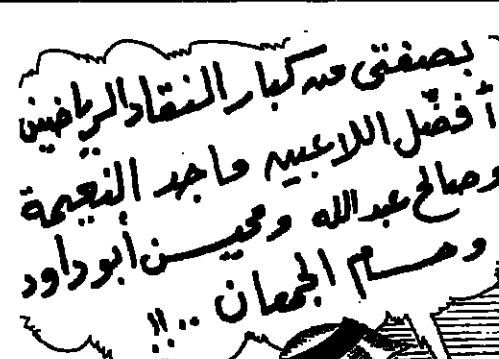 بصفتي من كبار النقاد الرياضيين
أفضّل اللاعبين ماجد النعيمة
وصالح عبدالله ومحيسن أبوداود
وحسام الجمعان ..!!